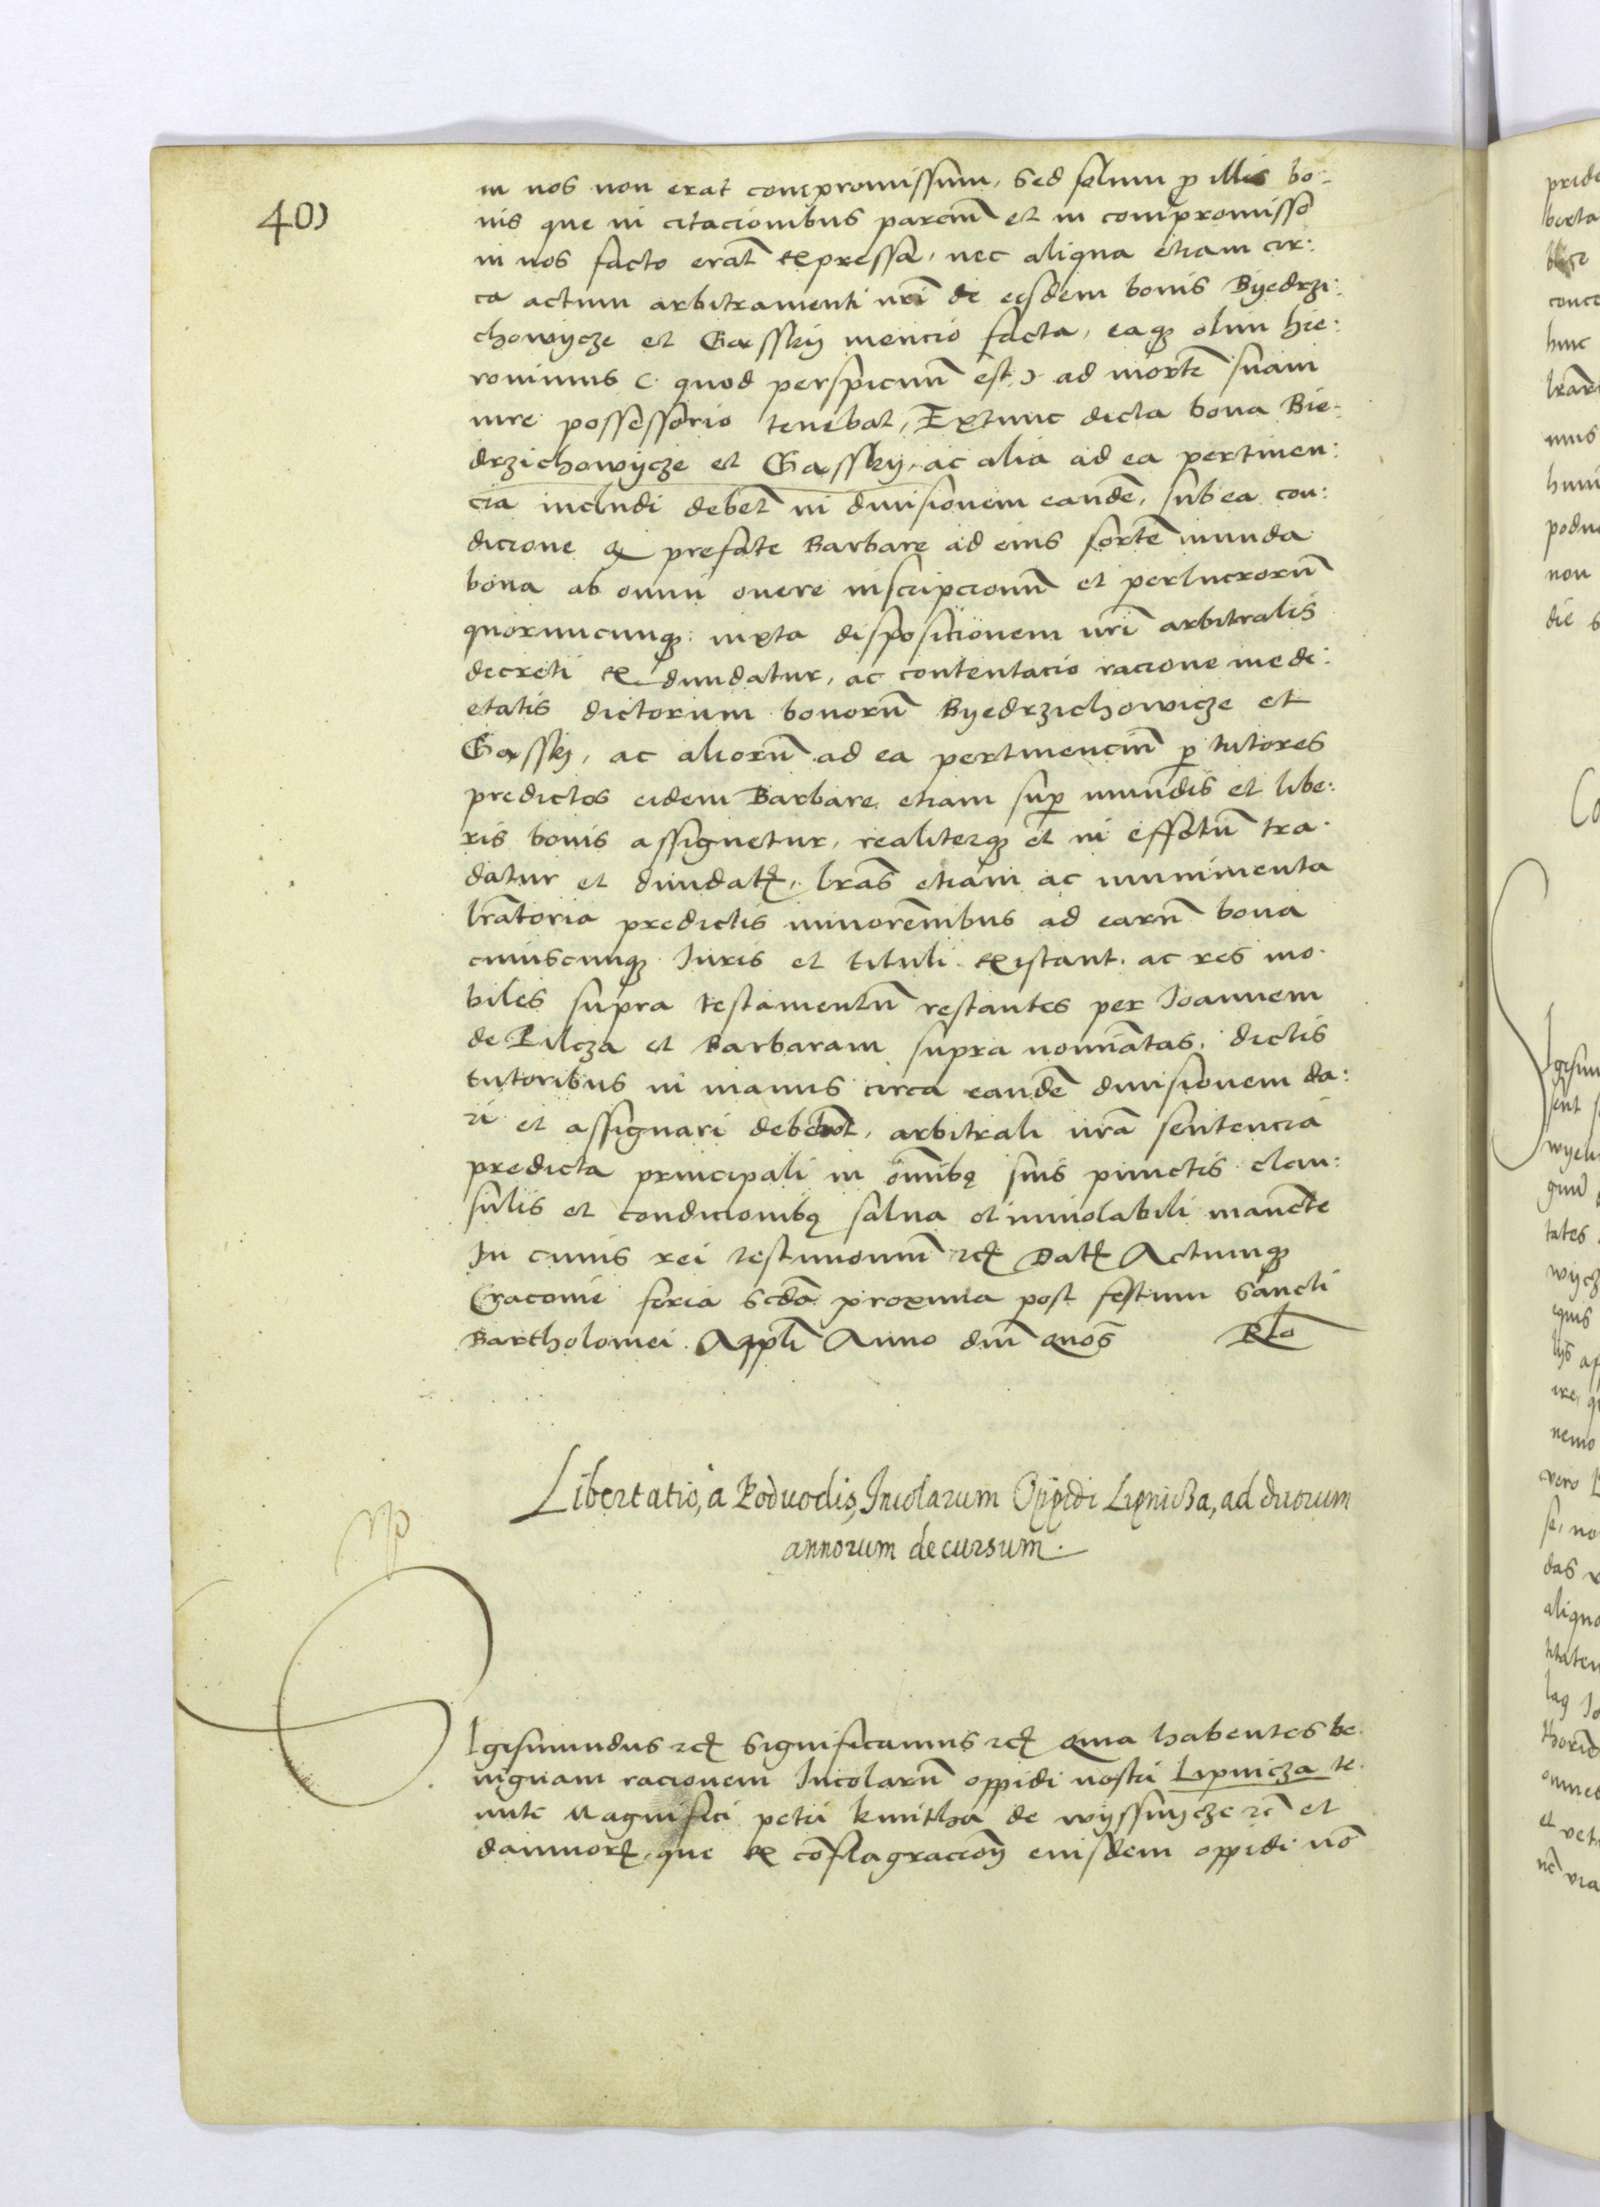 401
in nos non erat compromissum, sed solum p illis bo:
nis que in citacionibus parciu͂ et in compromisso
in nos facto erat͂ expressa, nec aliqua etiam cir:
ca actum arbitramenti nr͂i de eisdem bonis Byedrzi:
chowycze et Gassky mencio facta, eaq3 olim hie:
ronimus (quod perspicuu͂ est) ad morte͂ suam
iure possessorio tenebat, Extunc dicta bona Bie-
drzichowycze et Gassky, ac alia ad ea pertinen:
cia includi debet͂ in divisionem eande͂, sub ea con:
dicione q prefate Barbare ad eius sorte͂ munda
bona ab omni onere inscripcionu͂ et perlucroru͂
quorumcunq3 iuxta disposicionem nr͂i arbitralis
decreti ex dundatur, ac contentacio racione medi:
etatis dictorum bonoru͂ Byedrzichowicze et
Gassky, ac alioru͂ ad ea pertinenciu͂ p tutores
predictos eidem Barbare, etiam sup mundis et libe:
ris bonis assignetur, realiterq3 et in effctu͂ tra-
datur et dundat͂, lr͂as etiam ac munimenta
lr͂atoria predictis minore͂nibus ad earu͂ bona
cuiuscunq3 Iuris et tituli existant, ac res mo-
biles supra testamentu͂ restantes per Ioannem
de Pilcza et Barbaram supra nomi͂atas, dictis
tutoribus in manus circa eande͂ divisionem da:
ri et assignari debebut͂, arbitrali nr͂a sentencia
predicta principali in om͂ibq suis punctis clau:
sulis et condicionibq salva et inviolabili mane͂te
In cuius rei testimoniu͂ etc Dat͂ Actumq3
Cracovie feria scd͂a proxima post festum Sancti
Bartholomei Appl͂i Anno dni͂ quo s͂ Rlo
Libertatio, a Podvodis, Incolarum Oppidi Lipnicza, ad duorum
annorum decursum.
Igismundus etc Significamus etc Quia habentes be-
nignam racionem Incolaru͂ oppidi nostri Lipnicza te-
nute Magnifici petri kmitha de wyssnycze etc et
damnor͂, que ex co͂flagracion͂ eiusdem oppidi no͂